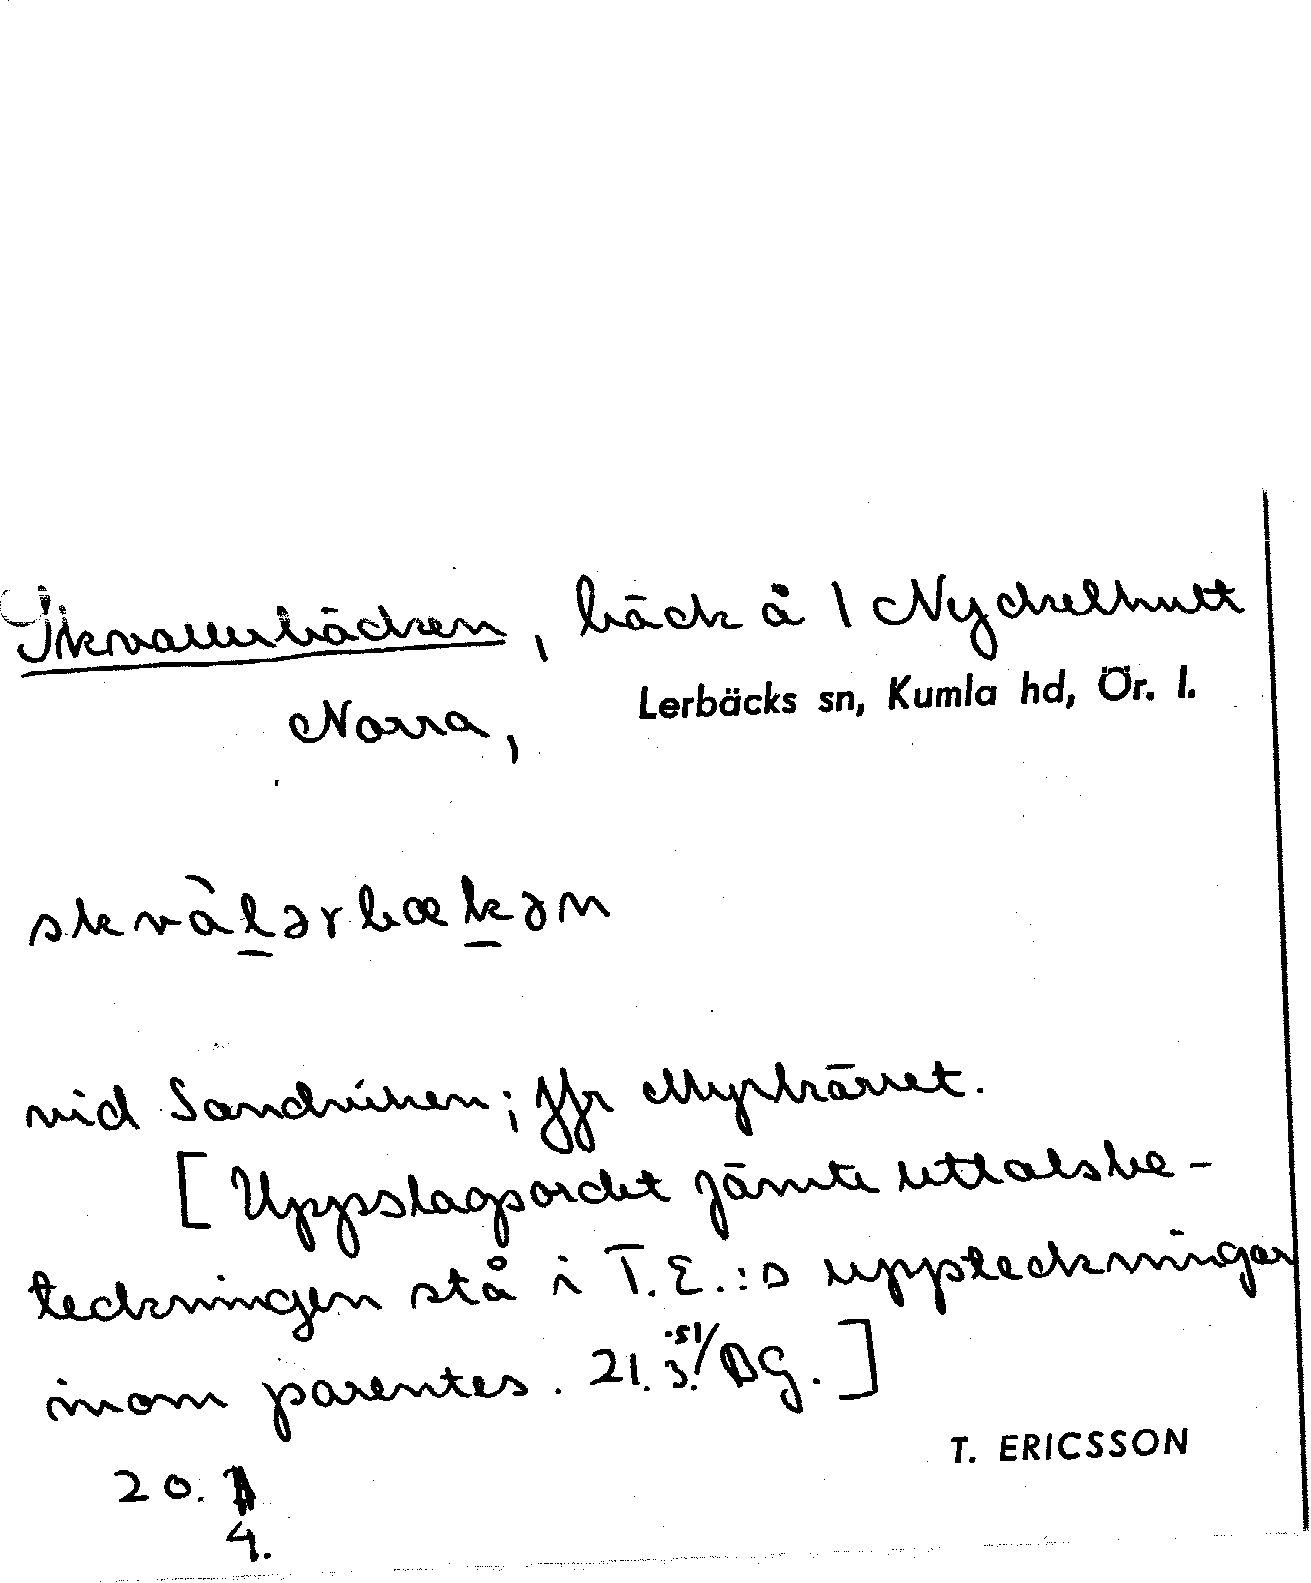 Skvallerbäcken, bäck å 1 Nyckelhult
Norra, Lerbäcks sn, Kumla hd, Ör. l.
skvàl̠ərbæk̠ən
vid Sandviken; jfr Myrkärret.
[Uppslagsordet jämte uttalsbe-
teckningen stå i T.E.:s uppteckningar
inom parentes. 21.3.51/BG.]
T. ERICSSON
20.
4.